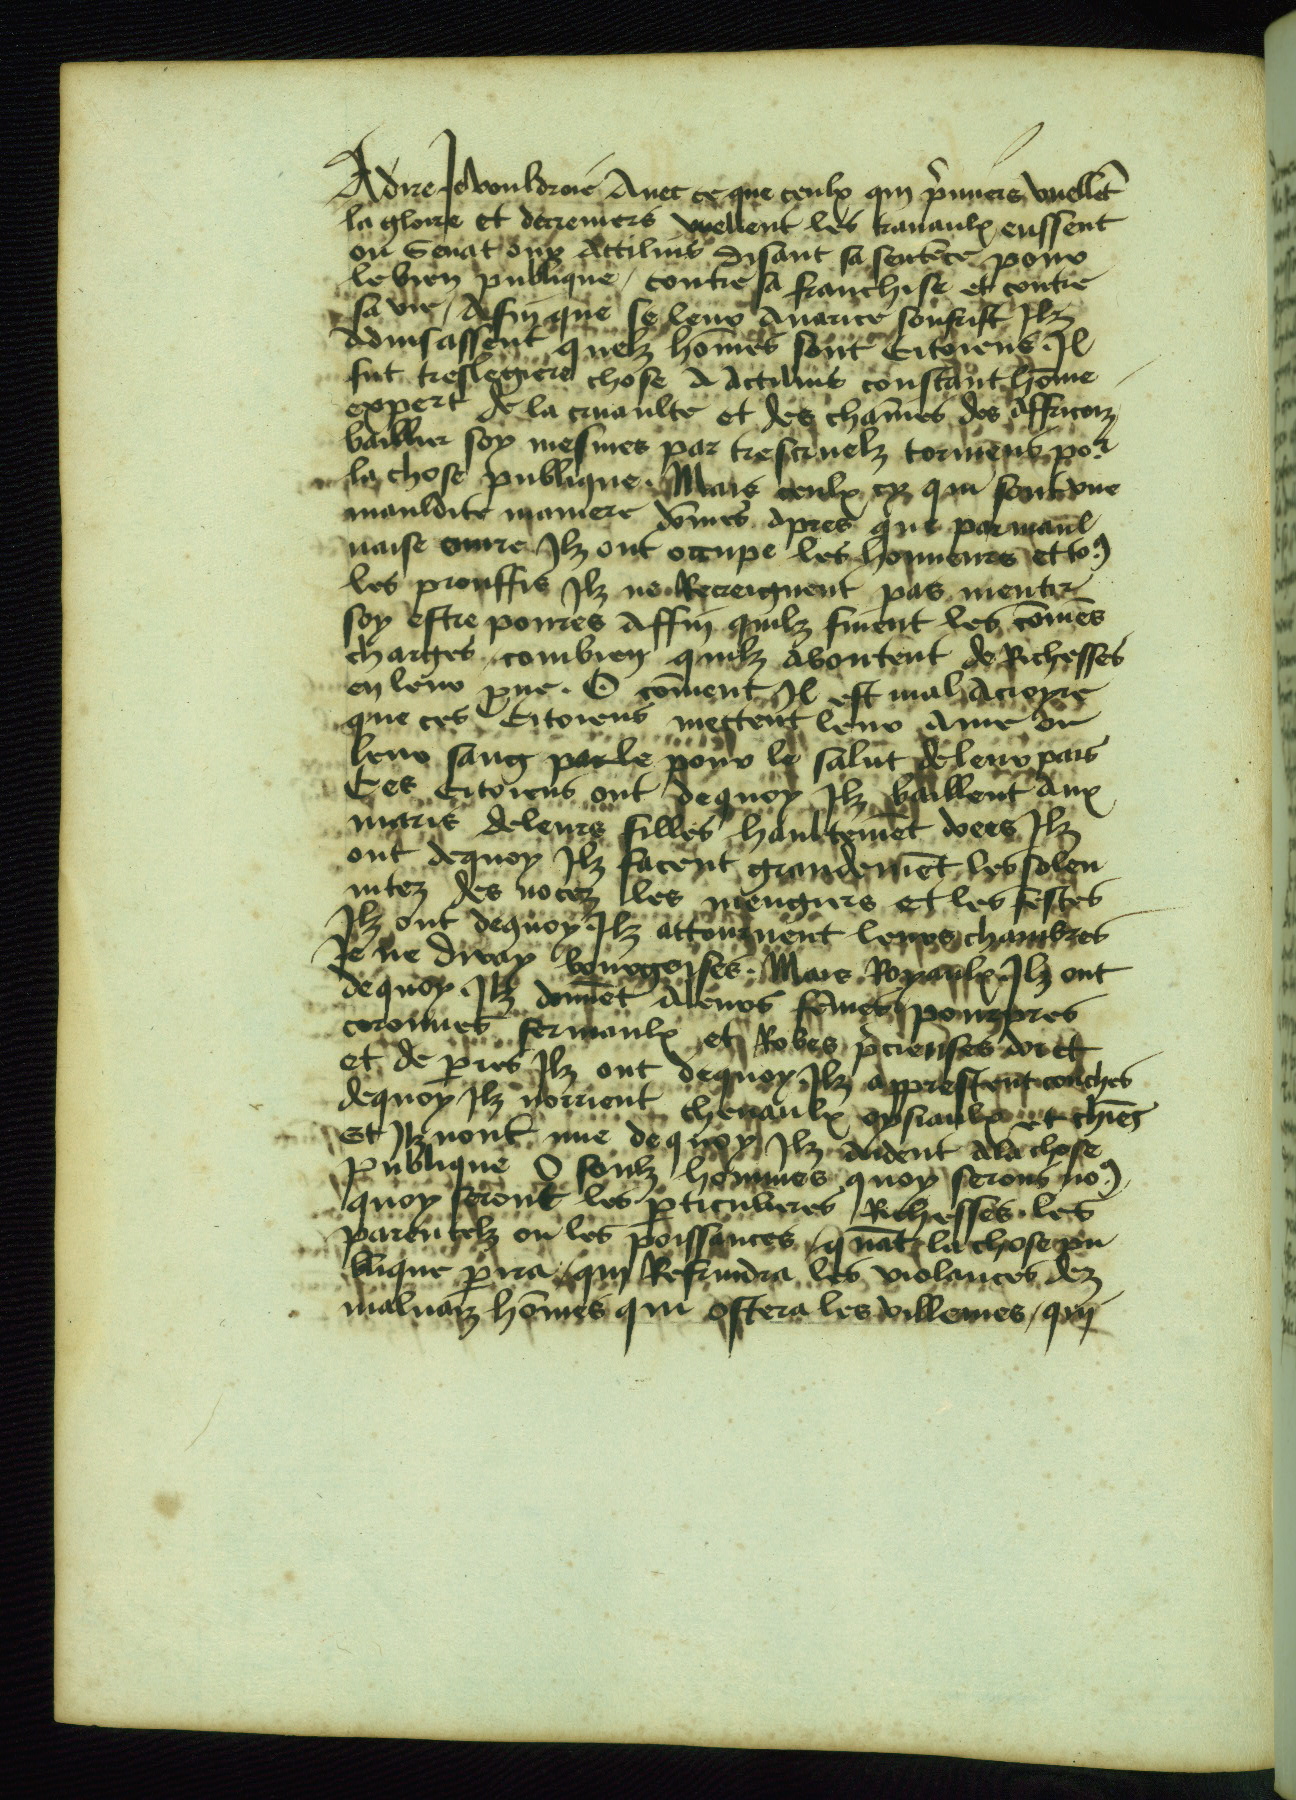 Adire Je vouldroie Avec ce que ceulx qui p̃miers vuellẽt
la gloire et derreniers vuellent les travaulx eussent
ou Senat ouy Actilius disant sa sentẽce pour
le bien publique / contre sa franchise et contre
sa vie / Afin que se leur Avarice soufrist Ilz
Advisassent quelz hõmes sont Citoiens . Il
fut treslegiere chose A Actilius constant hõme
expert de la cruaulte et des chaĩnes des Affricans
baillier soy mesmes par trescruelz tormens por
la chose publique . Mais ceulx cy qui sont vne
mauldite maniere dõmes apres que par maul
vaise envie Ilz ont occupe les honneurs et to9
les prouffis Ilz ne Recreignent pas mentir
soy estre povres Affin quilz fuient les cõmẽs
charges . combien quilz abontent de Richesses
en leur p̃ue . O cõment Il est mal Acroyre
que ces Citoiens mettent leur Ame ou
leur sang par le pour le salut de leur pais
Ces Citoiens ont dequoy Ilz baillent Aux
maris de leurs filles haultemẽt doees Ilz
ont dequoy Ilz facent grandemẽt les solen
nitez des nocez les mengiers et les festes
Ilz ont dequoy Ilz attournent leurs chambres
Je ne diray bourgoises . Mais Royaulx . Ilz ont
dequoy . Ilz donnẽt A leurs fẽmes pourpres
coronnes fermaulx et Robes p̃cieuses dor et
et de p̃res Ilz ont dequoy . Ilz apprestent couches
dequoy Ilz norrient chevaulx oysiaulx et chiẽs
Et Ilz nont mie dequoy Ilz Aident Ala chose
publique O foulz hommes quoy serons no9
quoy seront les p̃ticulieres Richesses . les
parentelz ou les poissances / quãt la chose pu
blique p̃ira / qui Refraindra les violances dez
malvaiz hõmes qui ostera les villenies / qui